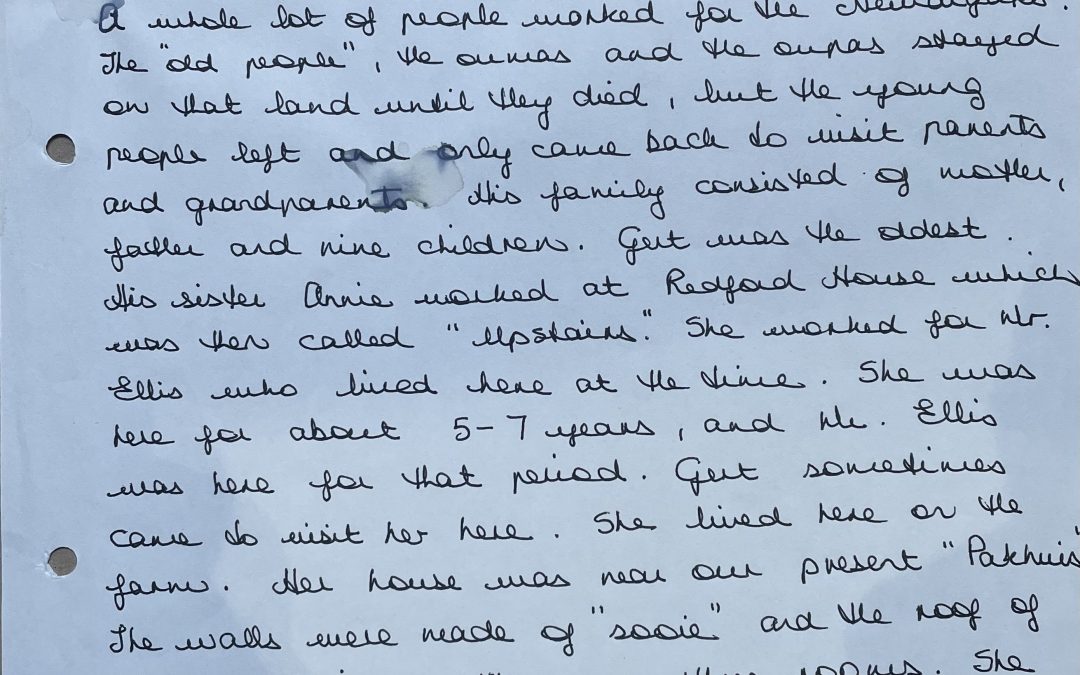 A whole lot of people worked for the
The "old people", the oumas and the oupas stayed
on that land until they died, but the young
people left and only came back to visit parents
and grandparents. His family consisted of mother,
father and nine children. Gert was the oldest.
His sister Annie worked at Redford House which
was then called "Upstairs". She worked for Mr.
Ellis who lived here at the time. She was
here for about 5-7 years, and Mr. Ellis
was here for that period. Gert sometimes
came to visit her here. She lived here on the
farm. Her house was near our present "Pakhuis"
The walls were made of "sooie" and the roof of
rooms. She